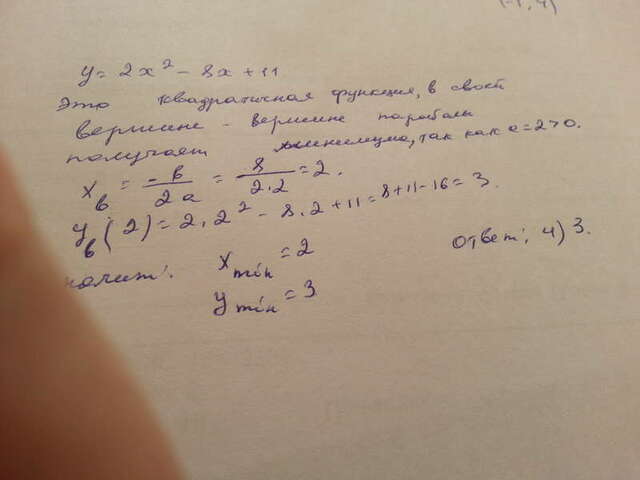 (-1, 4)
y = 2x² - 8x + 11
Это квадратичная функция, в своей
вершине - вершине параболы
получает минимума, так как a = 2 > 0.
x_в = -в/2a = 8/2·2 = 2.
y_в(2) = 2·2² - 8·2 + 11 = 8 + 11 - 16 = 3.
x_min = 2
Ответ: 4) 3.
y_min = 3